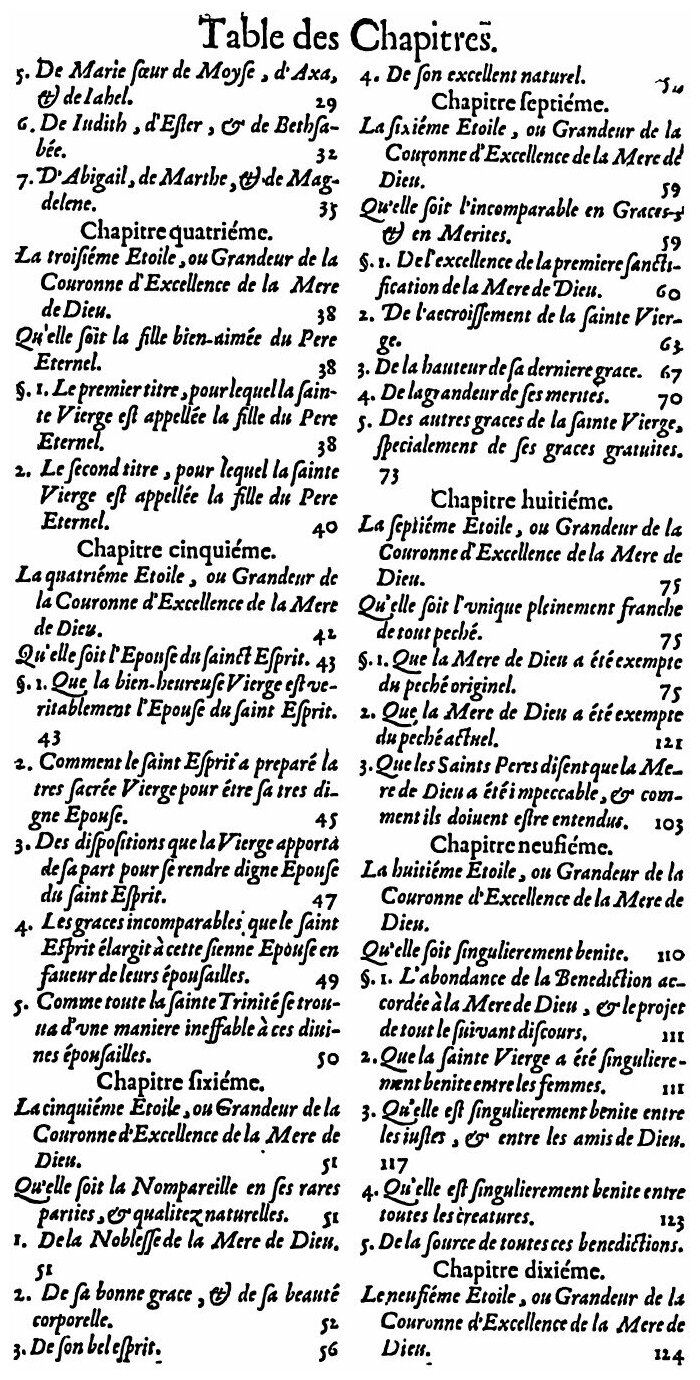 Table des Chapitres.
5. De Marie sœur de Moyse, d'Axa,
& de Iahel. 29
6. De Iudith, d'Ester, & de Bethsa-
bée. 32
7. D'Abigail, de Marthe, & de Mag-
delene. 35
Chapitre quatriéme.
La troisiéme Etoile, ou Grandeur de la
Couronne d'Excellence de la Mere
de Dieu. 38
Qu'elle soit la fille bien-aimée du Pere
Eternel. 38
§. 1. Le premier titre, pour lequel la sain-
te Vierge est appellée la fille du Pere
Eternel. 38
2. Le second titre, pour lequel la sainte
Vierge est appellée la fille du Pere
Eternel. 40
Chapitre cinquiéme.
La quatriéme Etoile, ou Grandeur de
la Couronne d'Excellence de la Mere
de Dieu. 42
Qu'elle soit l'Epouse du sainct Esprit. 43
§. 1. Que la bien-heureuse Vierge est ve-
ritablement l'Epouse du saint Esprit.
43
2. Comment le saint Esprit a preparé la
tres sacrée Vierge pour étre sa tres di-
gne Epouse. 45
3. Des dispositions que la Vierge apporta
de sa part pour se rendre digne Epouse
du saint Esprit. 47
4. Les graces incomparables que le saint
Esprit élargit à cette sienne Epouse en
faueur de leurs épousailles. 49
5. Comme toute la sainte Trinité se trou-
ua d'vne maniere ineffable à ces diui-
nes épousailles. 50
Chapitre sixiéme.
La cinquiéme Etoile, ou Grandeur de la
Couronne d'Excellence de la Mere de
Dieu. 51
Qu'elle soit la Nompareille en ses rares
parties, & qualitez naturelles. 51
1. De la Noblesse de la Mere de Dieu.
51
2. De sa bonne grace, & de sa beauté
corporelle. 52
3. De son bel esprit. 56
4. De son excellent naturel.
Chapitre septiéme.
La sixiéme Etoile, ou Grandeur de la
Couronne d'Excellence de la Mere de
Dieu. 59
Qu'elle soit l'incomparable en Graces,
& en Merites. 59
§. 1. De l'excellence de la premiere sancti-
fication de la Mere de Dieu. 60
2. De l'accroissement de la sainte Vier-
ge. 63
3. De la hauteur de sa derniere grace. 67
4. De la grandeur de ses merites. 70
5. Des autres graces de la sainte Vierge,
specialement de ses graces gratuites.
73
Chapitre huitiéme.
La septiéme Etoile, ou Grandeur de la
Couronne d'Excellence de la Mere de
Dieu. 75
Qu'elle soit l'vnique pleinement franche
de tout peché. 75
§. 1. Que la Mere de Dieu a été exempte
du peché originel. 75
2. Que la Mere de Dieu a été exempte
du peché actuel. 121
3. Que les Saints Peres disent que la Me-
re de Dieu a été impeccable, & com-
ment ils doiuent estre entendus. 103
Chapitre neufiéme.
La huitiéme Etoile, ou Grandeur de la
Couronne d'Excellence de la Mere de
Dieu.
Qu'elle soit singulierement benite. 110
§. 1. L'abondance de la Benediction ac-
cordée à la Mere de Dieu, & le projet
de tout le suivant discours. 111
2. Que la sainte Vierge a été singuliere-
ment benite entre les femmes. 111
3. Qu'elle est singulierement benite entre
les iustes, & entre les amis de Dieu.
117
4. Qu'elle est singulierement benite entre
toutes les creatures. 123
5. De la source de toutes ces benedictions.
Chapitre dixiéme.
Le neufiéme Etoile, ou Grandeur de la
Couronne d'Excellence de la Mere de
Dieu. 124